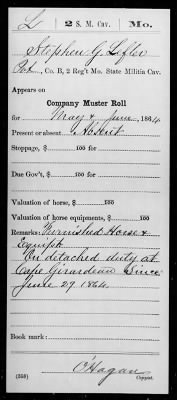 L 2 S. M. Cav. Mo.
Stephen G. Lefler
Pvt., Co. B, 2 Reg't Mo. State Militia Cav.
Appears on
Company Muster Roll
for May & June, 1864
Present or absent Absent
Stoppage, $ 100 for
Due Gov't, $ 100 for
Valuation of horse, $ 100
Valuation of horse equipments, $ 100
Remarks: Furnished Horse &
Equipts
On detached duty at
Cape Girardeau Since
June 29. 1864.
Book mark:
O'Hagan
(359) Copyist.